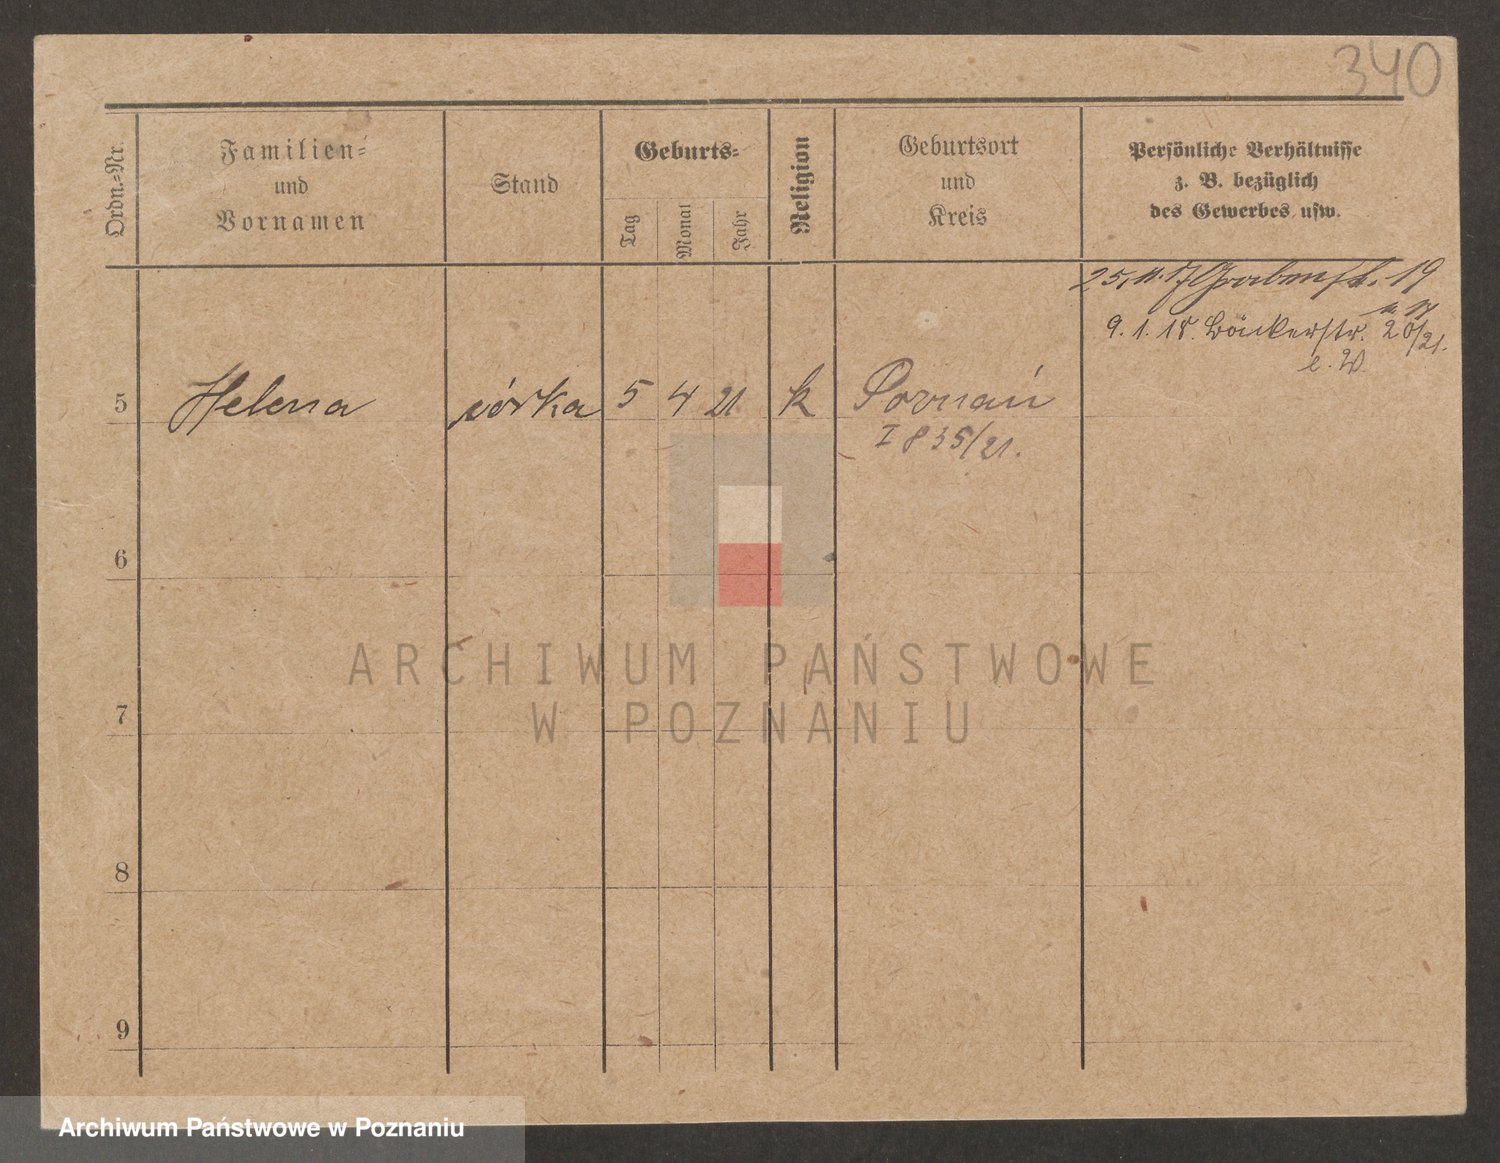 340
Ordn.=Nr.
Familien=
und
Vornamen
Stand
Geburts=
Tag
Monat
Jahr
Religion
Geburtsort
und
Kreis
Persönliche Verhältnisse
z. B. bezüglich
des Gewerbes usw.
25.11.17 Grabenstr. 19
9.1.18. Bäckerstr. 20/21.
5 Helena córka 5 4 21 k Poznań
I 835/21.
6
7
8
9
ARCHIWUM PAŃSTWOWE
W POZNANIU
Archiwum Państwowe w Poznaniu